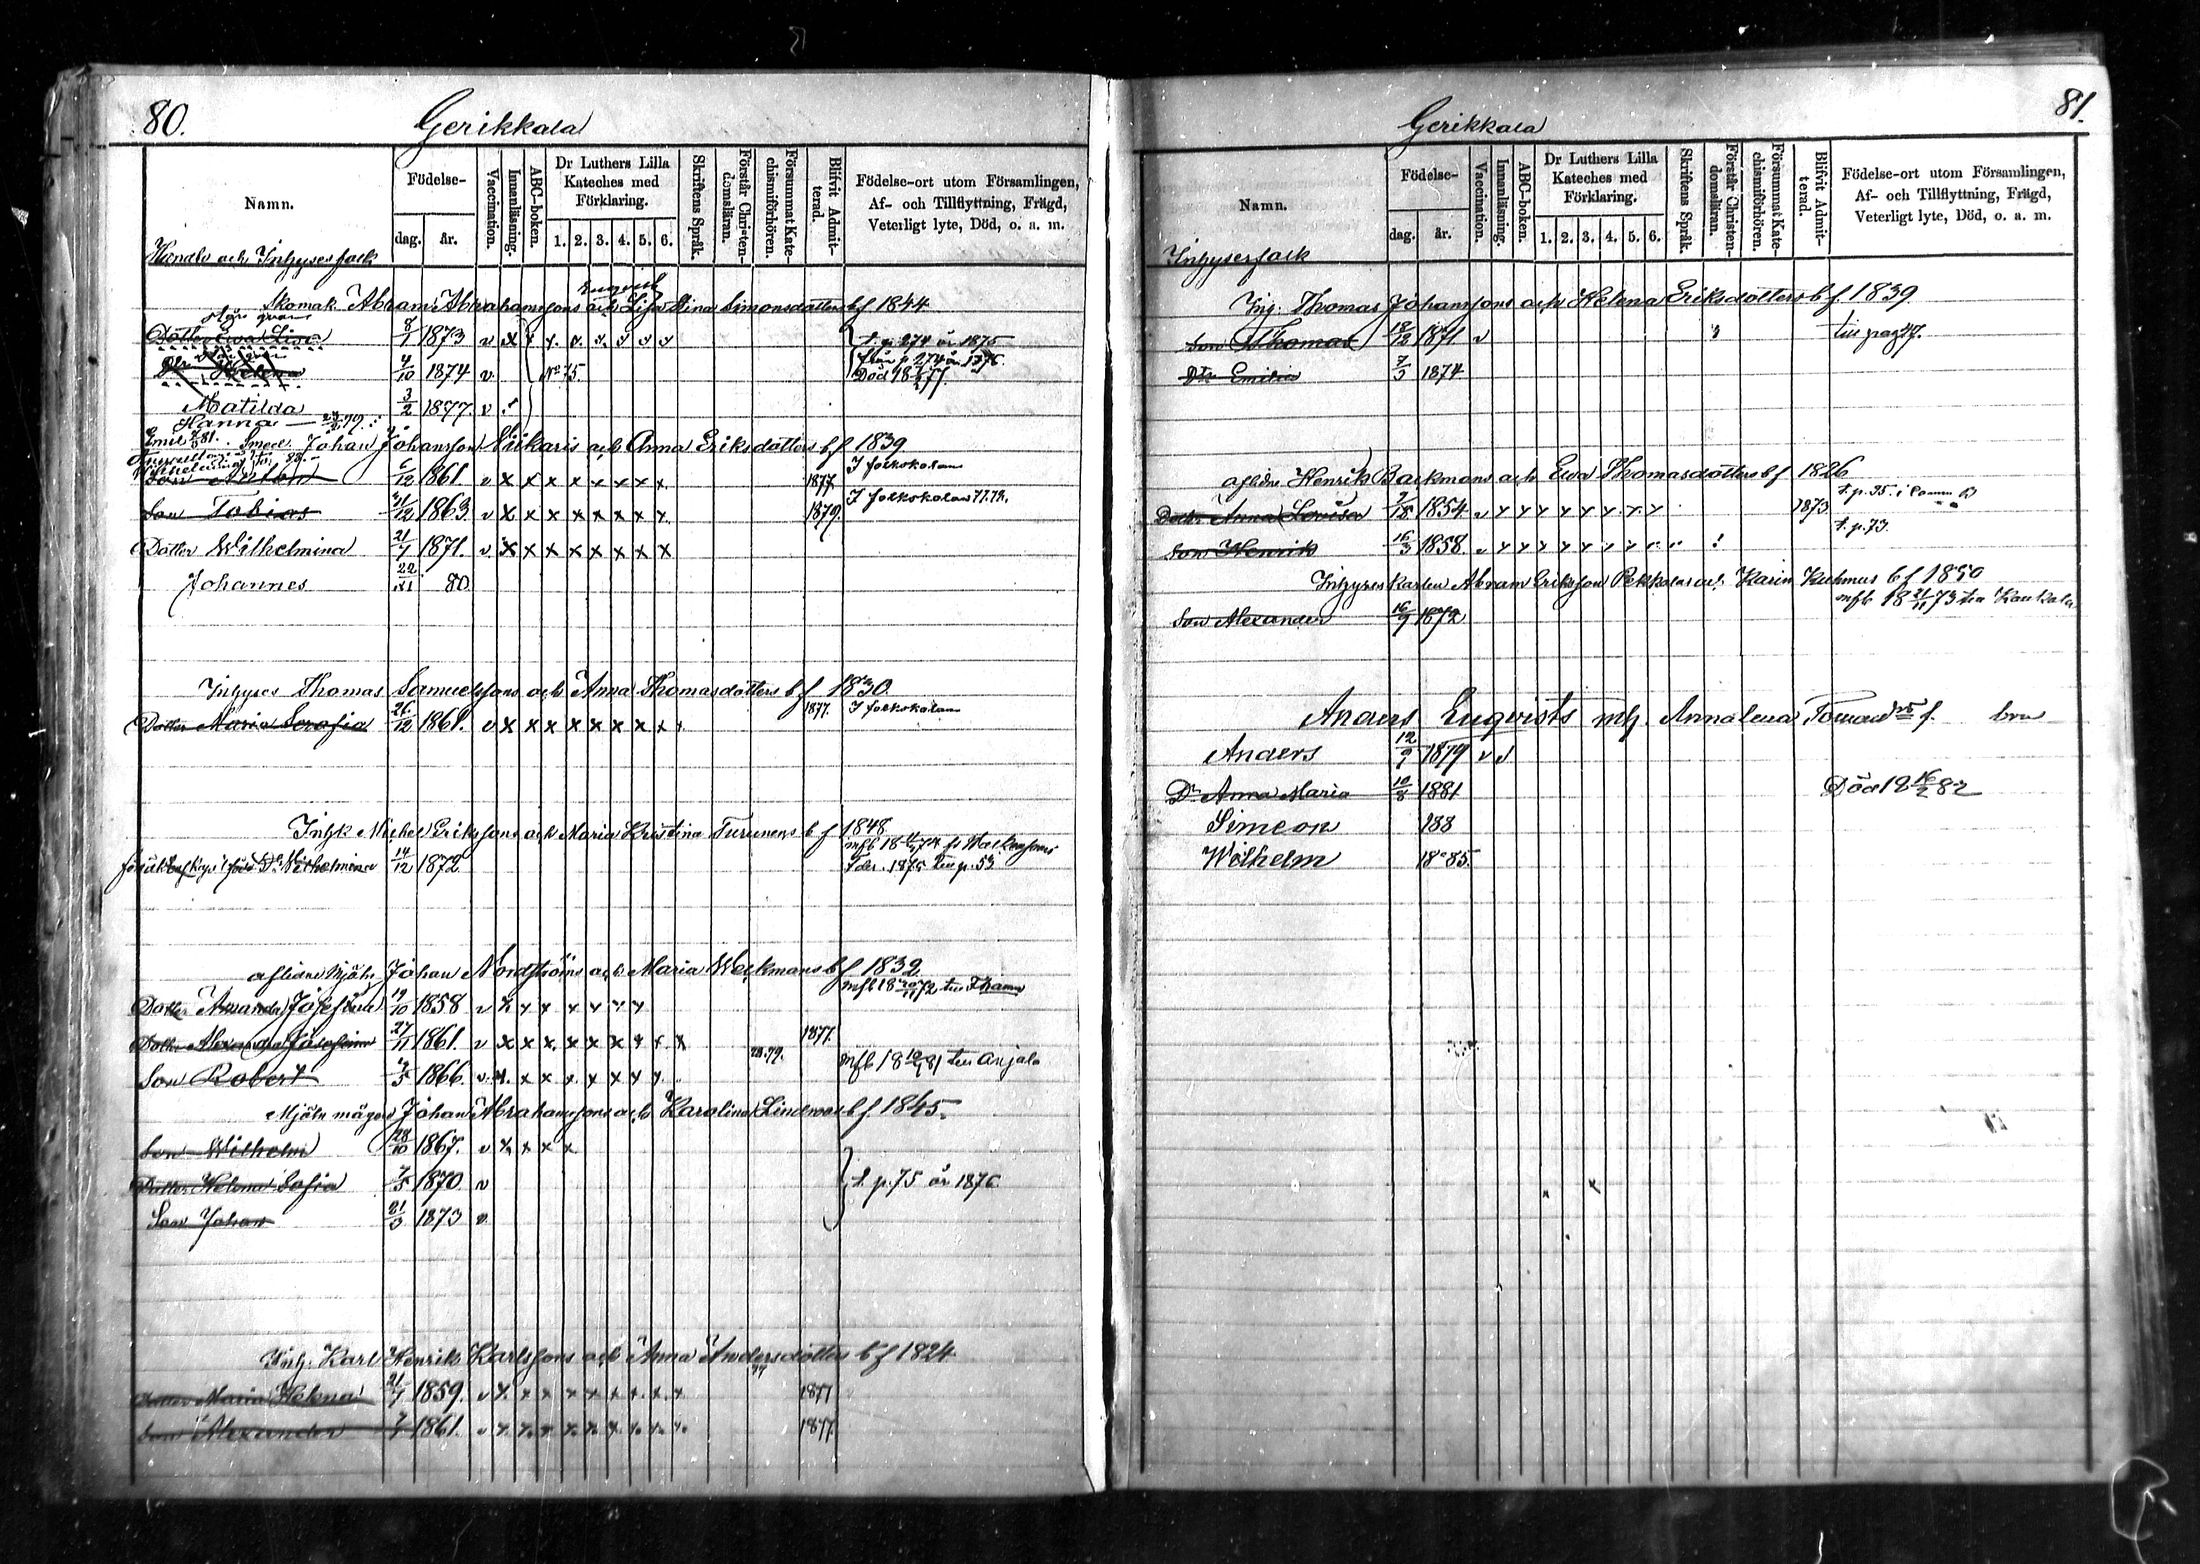 80.
Gerikkala
Namn.
Födelse-
dag.
år.
Vaccination.
Innanläsning.
ABC-boken.
Dr Luthers Lilla Kateches med Förklaring.
1. 2. 3. 4. 5. 6.
Skriftens Språk.
Förstår Christendomsläran.
Försummat Katechismiförhören.
Blifvit Admitterad.
Födelse-ort utom Församlingen, Af- och Tillflyttning, Frägd, Veterligt lyte, Död, o. a. m.
Handlr och Inhysesfolk
Skomak. Abram Abrahamssons och Lisa Stina Simonsdotters bf 1844
Dotter Ewa Lisa 8/7 1873 t. p. 274 år 1875
från p. 274 år 1876
Dtr Helena 4/10 1874 v. No 75. Död 18 77.
Matilda 3/2 1877 v
Hanna 79.
Emil 81. Smed. Johan Johansson och Anna Eriksdotters bf 1839
Son Anton 6/12 1861 v x x x x x x x x 1877 I folkskolan
Son Tobias 21/12 1863 v x x x x x x x x 1879. I folkskolan 77.78.
Dotter Wilhelmina 21/7 1871. v x x x x x x x x
Johannes 22/11 80
Inhyses Thomas Samuelssons och Anna Thomasdotters bf 1830.
Dotter Maria Serafia 26/12 1861. v x x x x x x x x 1877. I folkskolan
Inhk Michel Erikssons och Maria Kristina Turunens bf 1848
Dr Wilhelmina 14/12 1872 1875 till p. 53
aflidne Mjöln. Johan Nordströms och Maria Weckmans bf 1832
Dotter Amanda Josefina 19/10 1858 v x x x x x x x mfb 18 20/11 72 till Thamn
Dotter Alexandra Josefina 27/11 1861. v x x x x x x x x 1877.
Son Robert 5 1866. v x x x x x x x 78.79. mfb 18 10/1 81 till Anjala
Mjöln mågen Johan Abrahamssons och Karolina Lindroos bf 1845.
Son Wilhelm 28/10 1867. v x x x x
Dotter Helena Sofia 7/5 1870 v t. p. 75 år 1876
Son Johan 21/3 1873 v
Inh. Karl Henrik Karlssons och Anna Andersdotters bf 1824
Dotter Maria Helena 21/7 1859. v x x x x x x x x 77 1877
Son Alexander 1861. v x x x x x x x x 1877.
81.
Gerikkala
Namn.
Födelse-
dag.
år.
Vaccination.
Innanläsning.
ABC-boken.
Dr Luthers Lilla Kateches med Förklaring.
1. 2. 3. 4. 5. 6.
Skriftens Språk.
Förstår Christendomsläran.
Försummat Katechismiförhören.
Blifvit Admitterad.
Födelse-ort utom Församlingen, Af- och Tillflyttning, Frägd, Veterligt lyte, Död, o. a. m.
Inhysesfolk
Inh. Thomas Johanssons och Helena Eriksdotters bf. 1839
Son Thomas 18/12 1871 v till pag 47.
Dtr Emilia 7/5 1874
aflidne Henrik Backmans och Ewa Thomasdotters bf 1826
Dotter Anna Lovisa 1854. v x x x x x x x x 1873 t. p. 35. i Comm B
Son Henrik 16/3 1858. v x x x x x x x t. p. 73.
Inhyses karlen Abram Eriksson Pekkolas och Karin Kuhmus bf 1850
Son Alexander 16/9 1872 mfb 18 21/11 73 till Kaukola
Anders Enqvists mh Annalena
Anders 12/9 1879 v
Dr Anna Maria 10/8 1881 Död 18 16/2 82
Simeon 188
Wilhelm 1885.